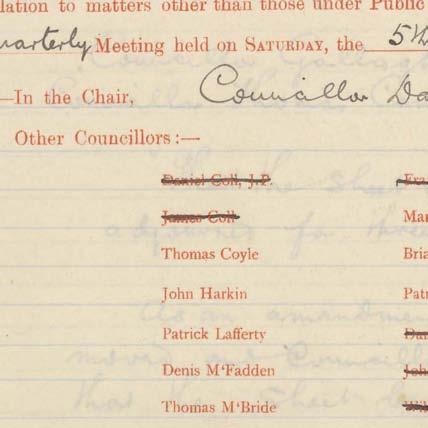 lation to matters other than those under Public
uarterly Meeting held on SATURDAY, the 5th
—In the Chair, Councillor Da
Other Councillors :—
Daniel Coll, J.P. Fra
James Coll Mar
Thomas Coyle Bria
John Harkin Patr
Patrick Lafferty Dan
Denis M‘Fadden Joh
Thomas M‘Bride Wil